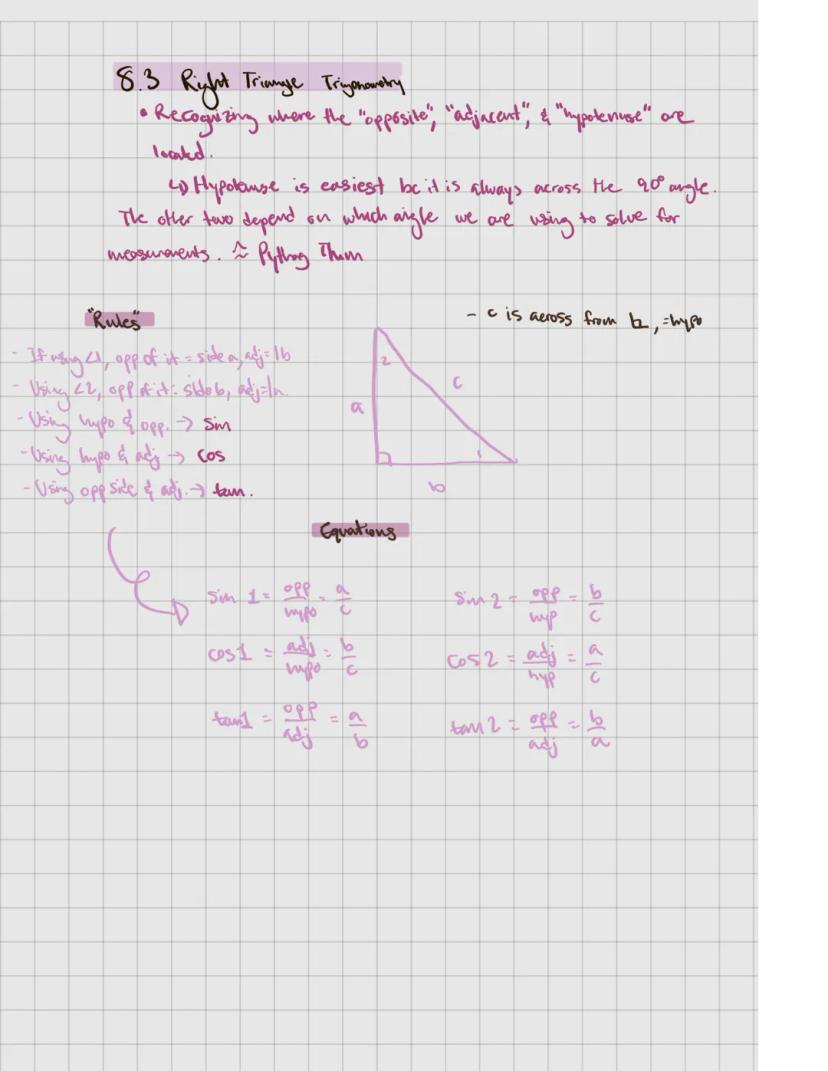 8.3 Right Triangle Trigonometry
• Recognizing where the "opposite", "adjacent", & "hypotenuse" are
located.
↳ Hypotenuse is easiest bc it is always across the 90° angle.
The other two depend on which angle we are using to solve for
measurements. ≈ Pythag Thrm
"Rules"
- c is across from b, =hypo
- If using ∠1, opp of it = side a, adj = 1b
- Using ∠2, opp of it = side b, adj =
- Using hypo & opp. → sin
- Using hypo & adj → cos
- Using opp side & adj. → tan.
2
c
a
1
b
Equations
sin 1 = opp/hypo = a/c
sin 2 = opp/hyp = b/c
cos 1 = adj/hypo = b/c
cos 2 = adj/hyp = a/c
tan 1 = opp/adj = a/b
tan 2 = opp/adj = b/a